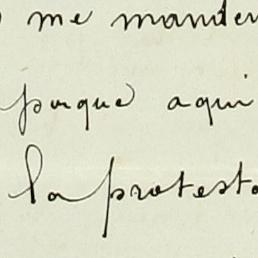 me manden
porque aqui
la protesta